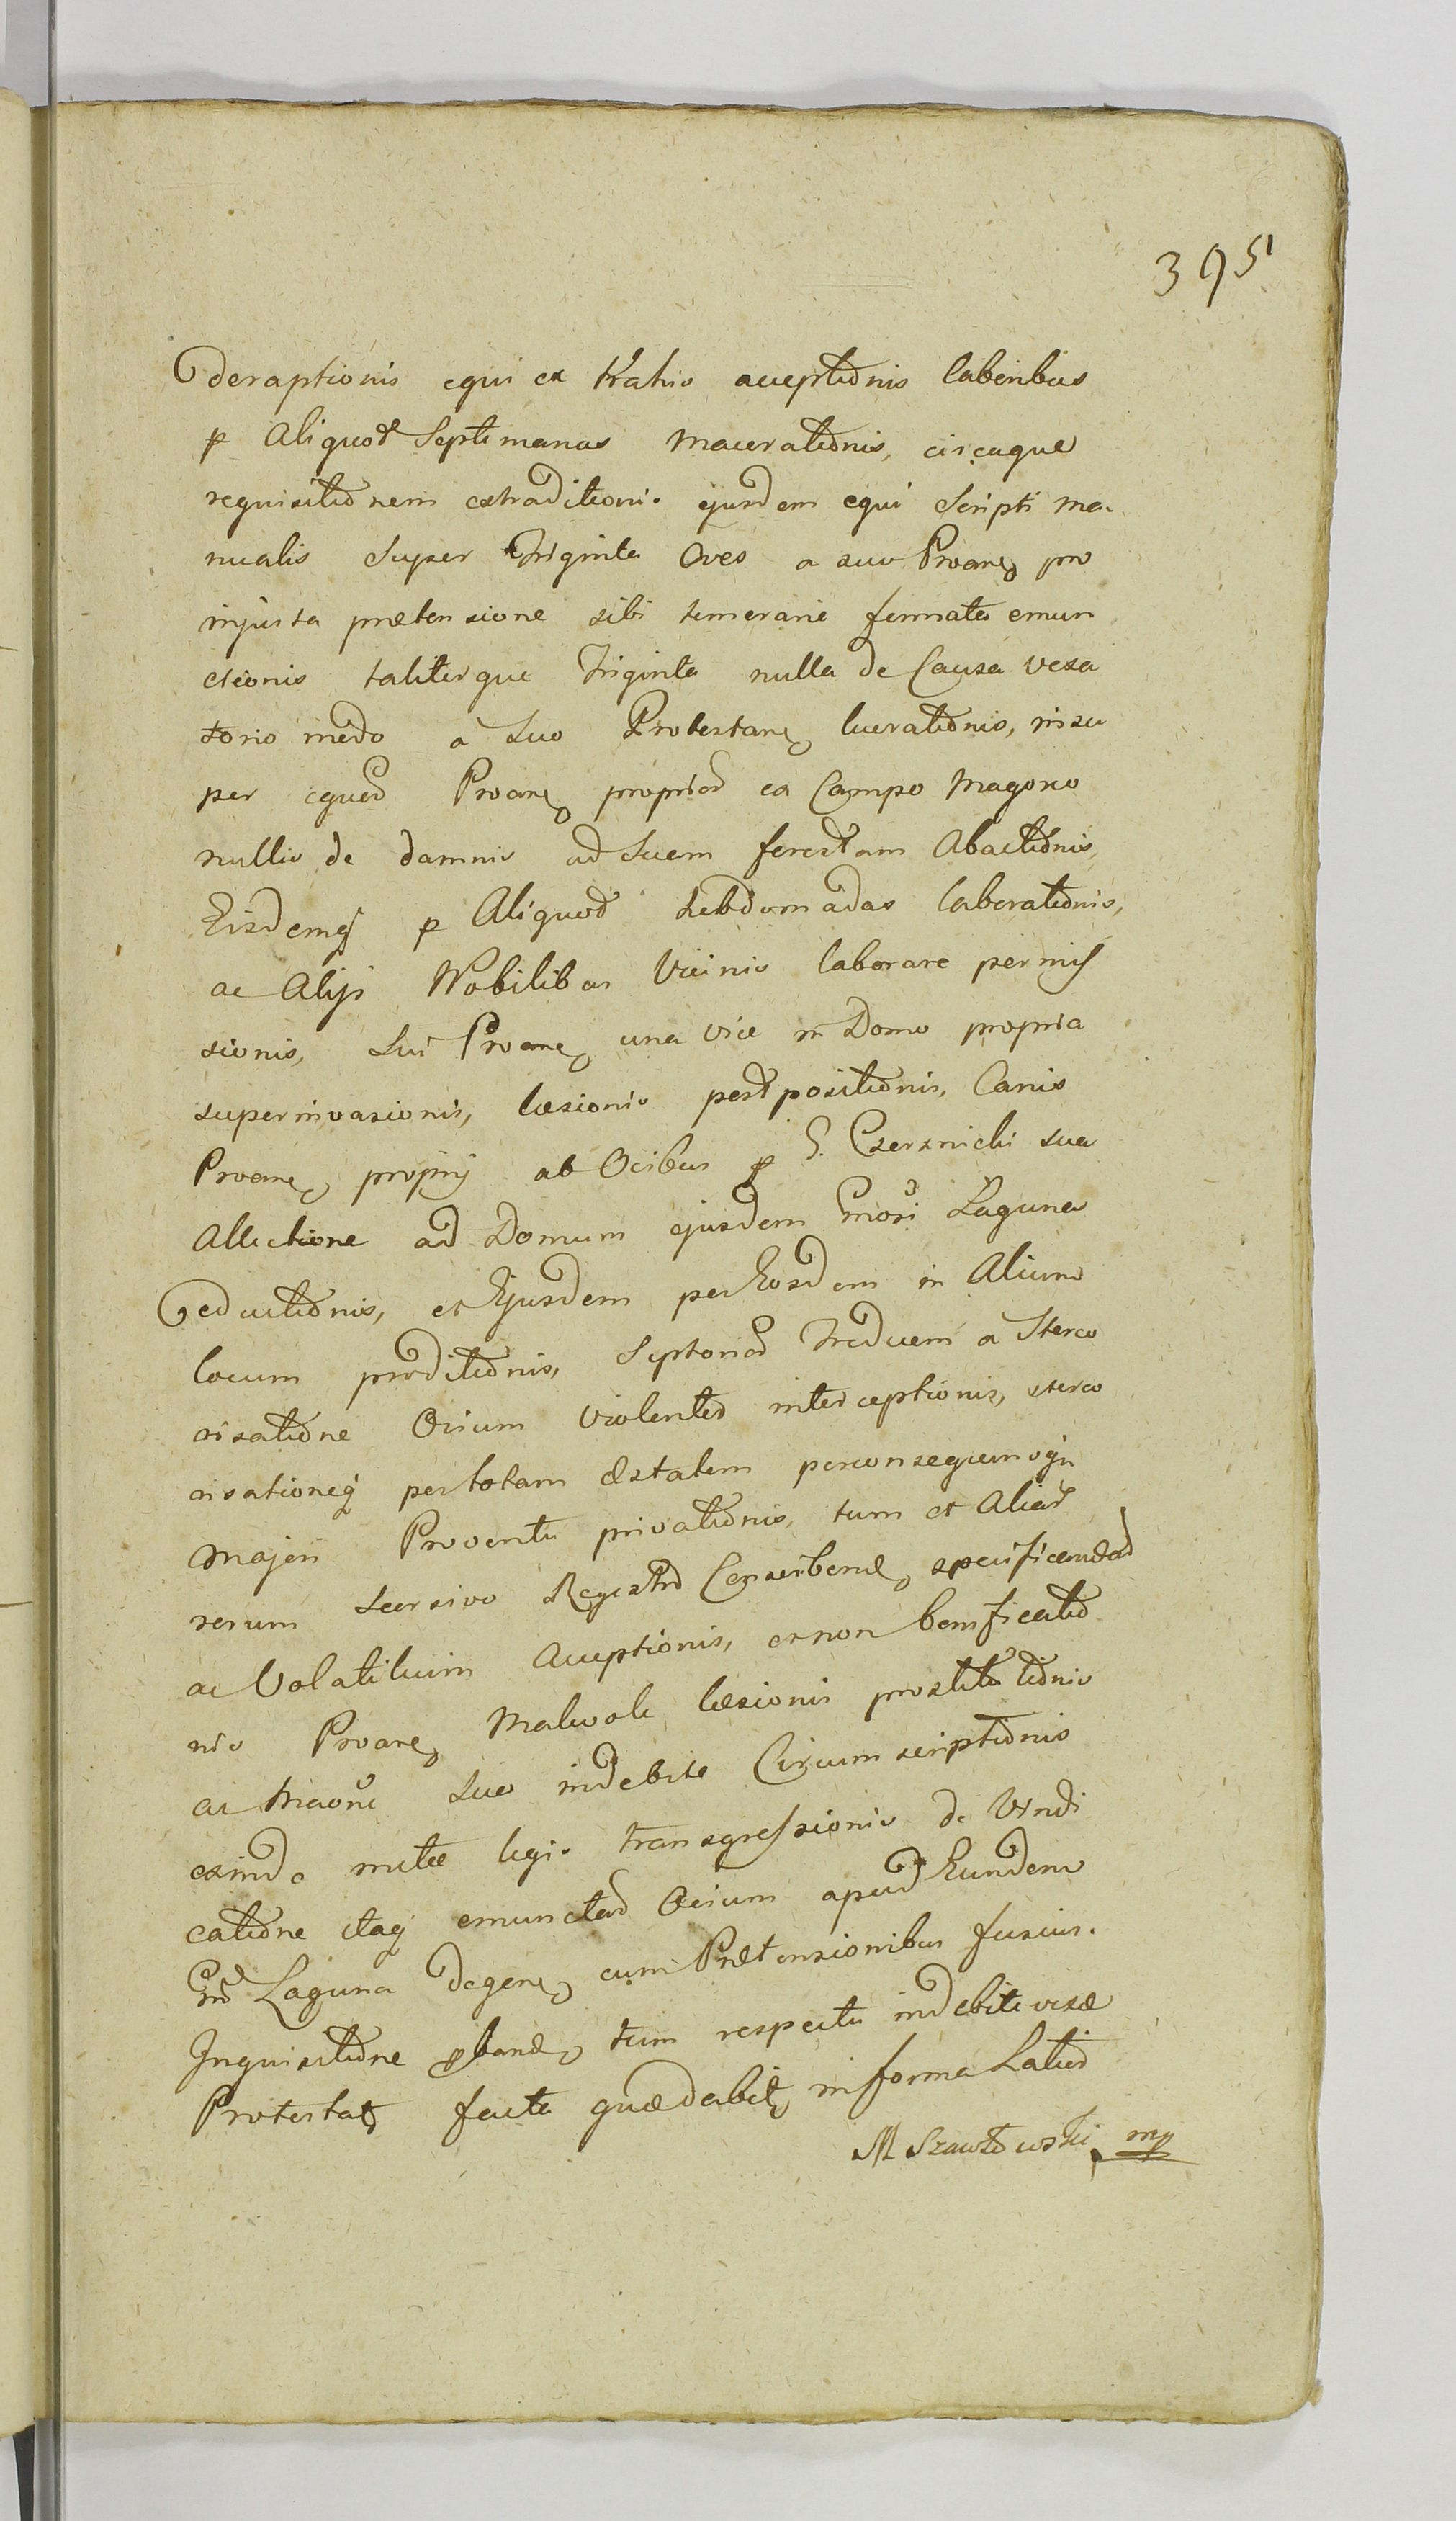 395
deraptionis equi ex krahis acceptionis laboribus
p Aliquod Septimanas Macerationis, circaque
requisitionem extraditionis ejusdem equi Scripti ma
nualis Super Triginta Oves a suo Proane pro
injusta prætensione sibi temerarie formata emun
ctionis taliterque Triginta nulla de Causa vexa
torio modo a Suo Protestane lucrationis, insu
per equod Proane propriod ex Campo Magono
nullis de damnis ad Suem ferestam Abactionis,
Eisdemq p Aliquod hebdomadas laborationis,
ac Alijs Nobilibus Vicinis laborare permis
sionis, Sui Proane una vice in Domo propria
superinvasionis, læsionis postpositionis, Canis
Proane proprij ab Ovibus p G. Czerznicki sua
Allectione ad Domum ejusdem Laguna
eductionis, et Ejusdem per Eosdem in Alium
locum proditionis, Septoriad Treducem a Sterco
risatione Ovium violented interceptionis, sterco
risationeq per totam æstatem
Majori Proventu privationis, tum et Aliad
rerum Seorsivo Registro Conscibend specificandad
ac Volatilium Acceptionis, et non bonificatio
nis Proane Malevole læsionis prostitutionis
ac Suo indebite Circumscriptionis
exinde legis transgressionis de Vindi
catione itaq emunctad Ovium apud Eundem
Laguna degene cum Prætensionibus fusius
Inquisitione pband tum respectu indebite visæ
Protestat facta in forma Latiod
M Szawłowski mp